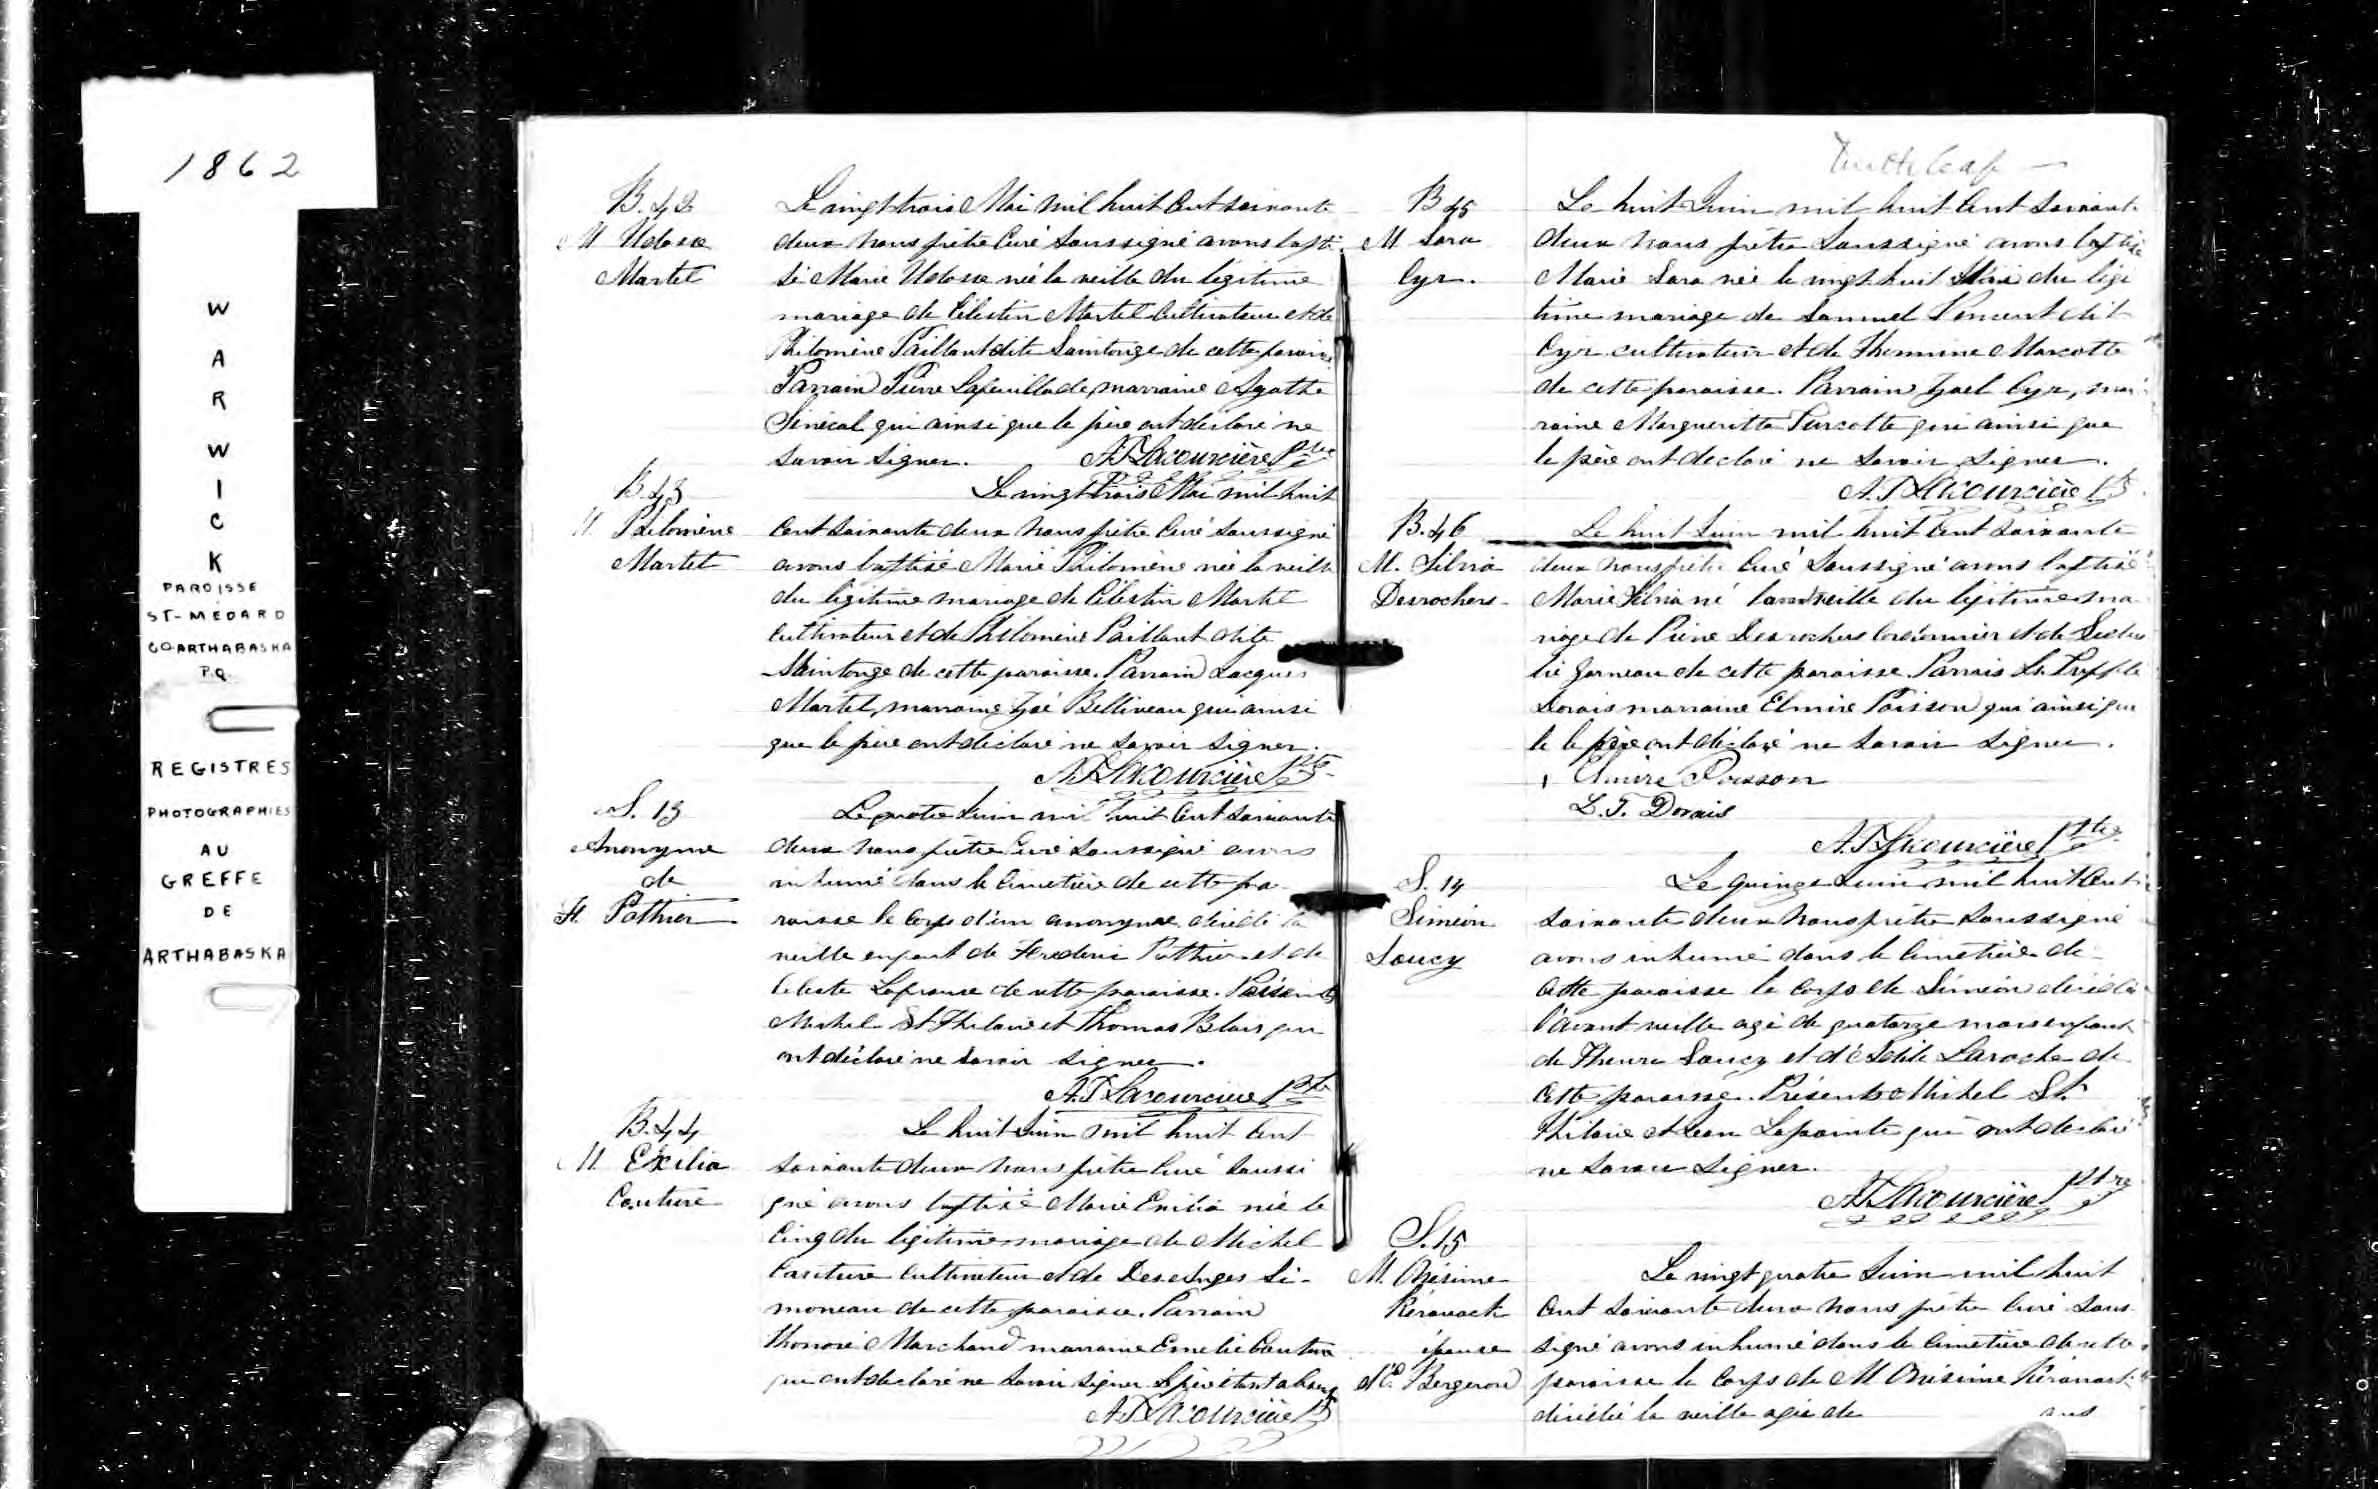 1862
WARWICK
PAROISSE
ST-MÉDARD
CO. ARTHABASKA
P.Q.
REGISTRES
PHOTOGRAPHIES
AU
GREFFE
DE
ARTHABASKA
B. 42
M
Martel
Le vingt trois Mai mil huit Cent soixante
deux nous prêtre Curé Soussigné avons bapti
sé Marie née la veille du légitime
mariage de Célestin Martel Cultivateur et de
Philomène Paillant dite Saintonge de cette paroisse
Parrain Pierre Lafeuillade, marraine Agathe
Sénécal qui ainsi que le père ont déclaré ne
savoir signer. Lacourcière Ptre
B. 43
M. Philomène
Martel
Le vingt trois Mai mil huit
Cent soixante deux nous prêtre Curé soussigné
avons baptisé Marie Philomène née la veille
du légitime mariage de Célestin Martel
Cultivateur et de Philomène Paillant dite
Saintonge de cette paroisse. Parrain Jacques
Martel, marraine Zoé Belliveau qui ainsi
que le père ont déclaré ne savoir signer.
Lacourcière Ptre
S. 13
Anonyme
de
Pothier
Le quatre Juin mil huit Cent soixante
deux nous prêtre Curé soussigné avons
inhumé dans le Cimetière de cette pa
roisse le Corps d'un anonyme décédé la
veille enfant de Frederic Pothier et de
Celeste Lafrance de cette paroisse. Présents
Michel St Hilaire et Thomas Blais qui
ont déclaré ne savoir signer.
Lacourcière Ptre
B. 44
M Exilia
Couture
Le huit Juin mil huit Cent
soixante deux nous prêtre Curé Soussi
gné avons baptisé Marie née le
Cinq du légitime mariage de Michel
Couture Cultivateur et de Des Anges Si-
moneau de cette paroisse. Parrain
Honoré Marchand marraine Emelie Couture
qui ont déclaré ne savoir signer le père étant absent
Lacourcière
B 45
M. Sara
Cyr.
Le huit Juin mil huit Cent soixante
deux nous prêtre Soussigné avons baptisé
Marie Sara née le vingt huit Mai du légi
time mariage de Samuel Vincent dit
Cyr cultivateur et de Marcotte
de cette paroisse. Parrain Cyr, mar
raine Margueritte Turcotte qui ainsi que
le père ont déclaré ne savoir signer.
Lacourcière
B. 46
M. Silvia
Desrochers
Le huit Juin mil huit Cent soixante
deux nous prêtre Curé Soussigné avons baptisé
Marie Silvia né la veille du légitime ma
riage de Pierre Desrochers Cordonnier et de
Garneau de cette paroisse. Parrain
Dorais marraine Elmire Poisson qui ainsi que
le père ont déclaré ne savoir signer.
Elmire Poisson
L. T. Dorais
Lacourcière Ptre
S. 14
Siméon
Soucy
Le quinze Juin mil huit Cent
soixante deux nous prêtre soussigné
avons inhumé dans le Cimetière de
Cette paroisse le Corps de Siméon décédé
l'avant veille agé de quatorze mois enfant
de Soucy et d' Laroche de
Cette paroisse. Présents Michel St
Hilaire et Jean Lapointe qui ont déclaré
ne savoir signer.
Lacourcière Ptre
S. 15
M. Onésime
épouse
Bergeron
Le vingt quatre Juin mil huit
Cent soixante deux nous prêtre Curé sous
signé avons inhumé dans le Cimetière de cette
paroisse le Corps de M Onésime
décédée la veille agée de ans